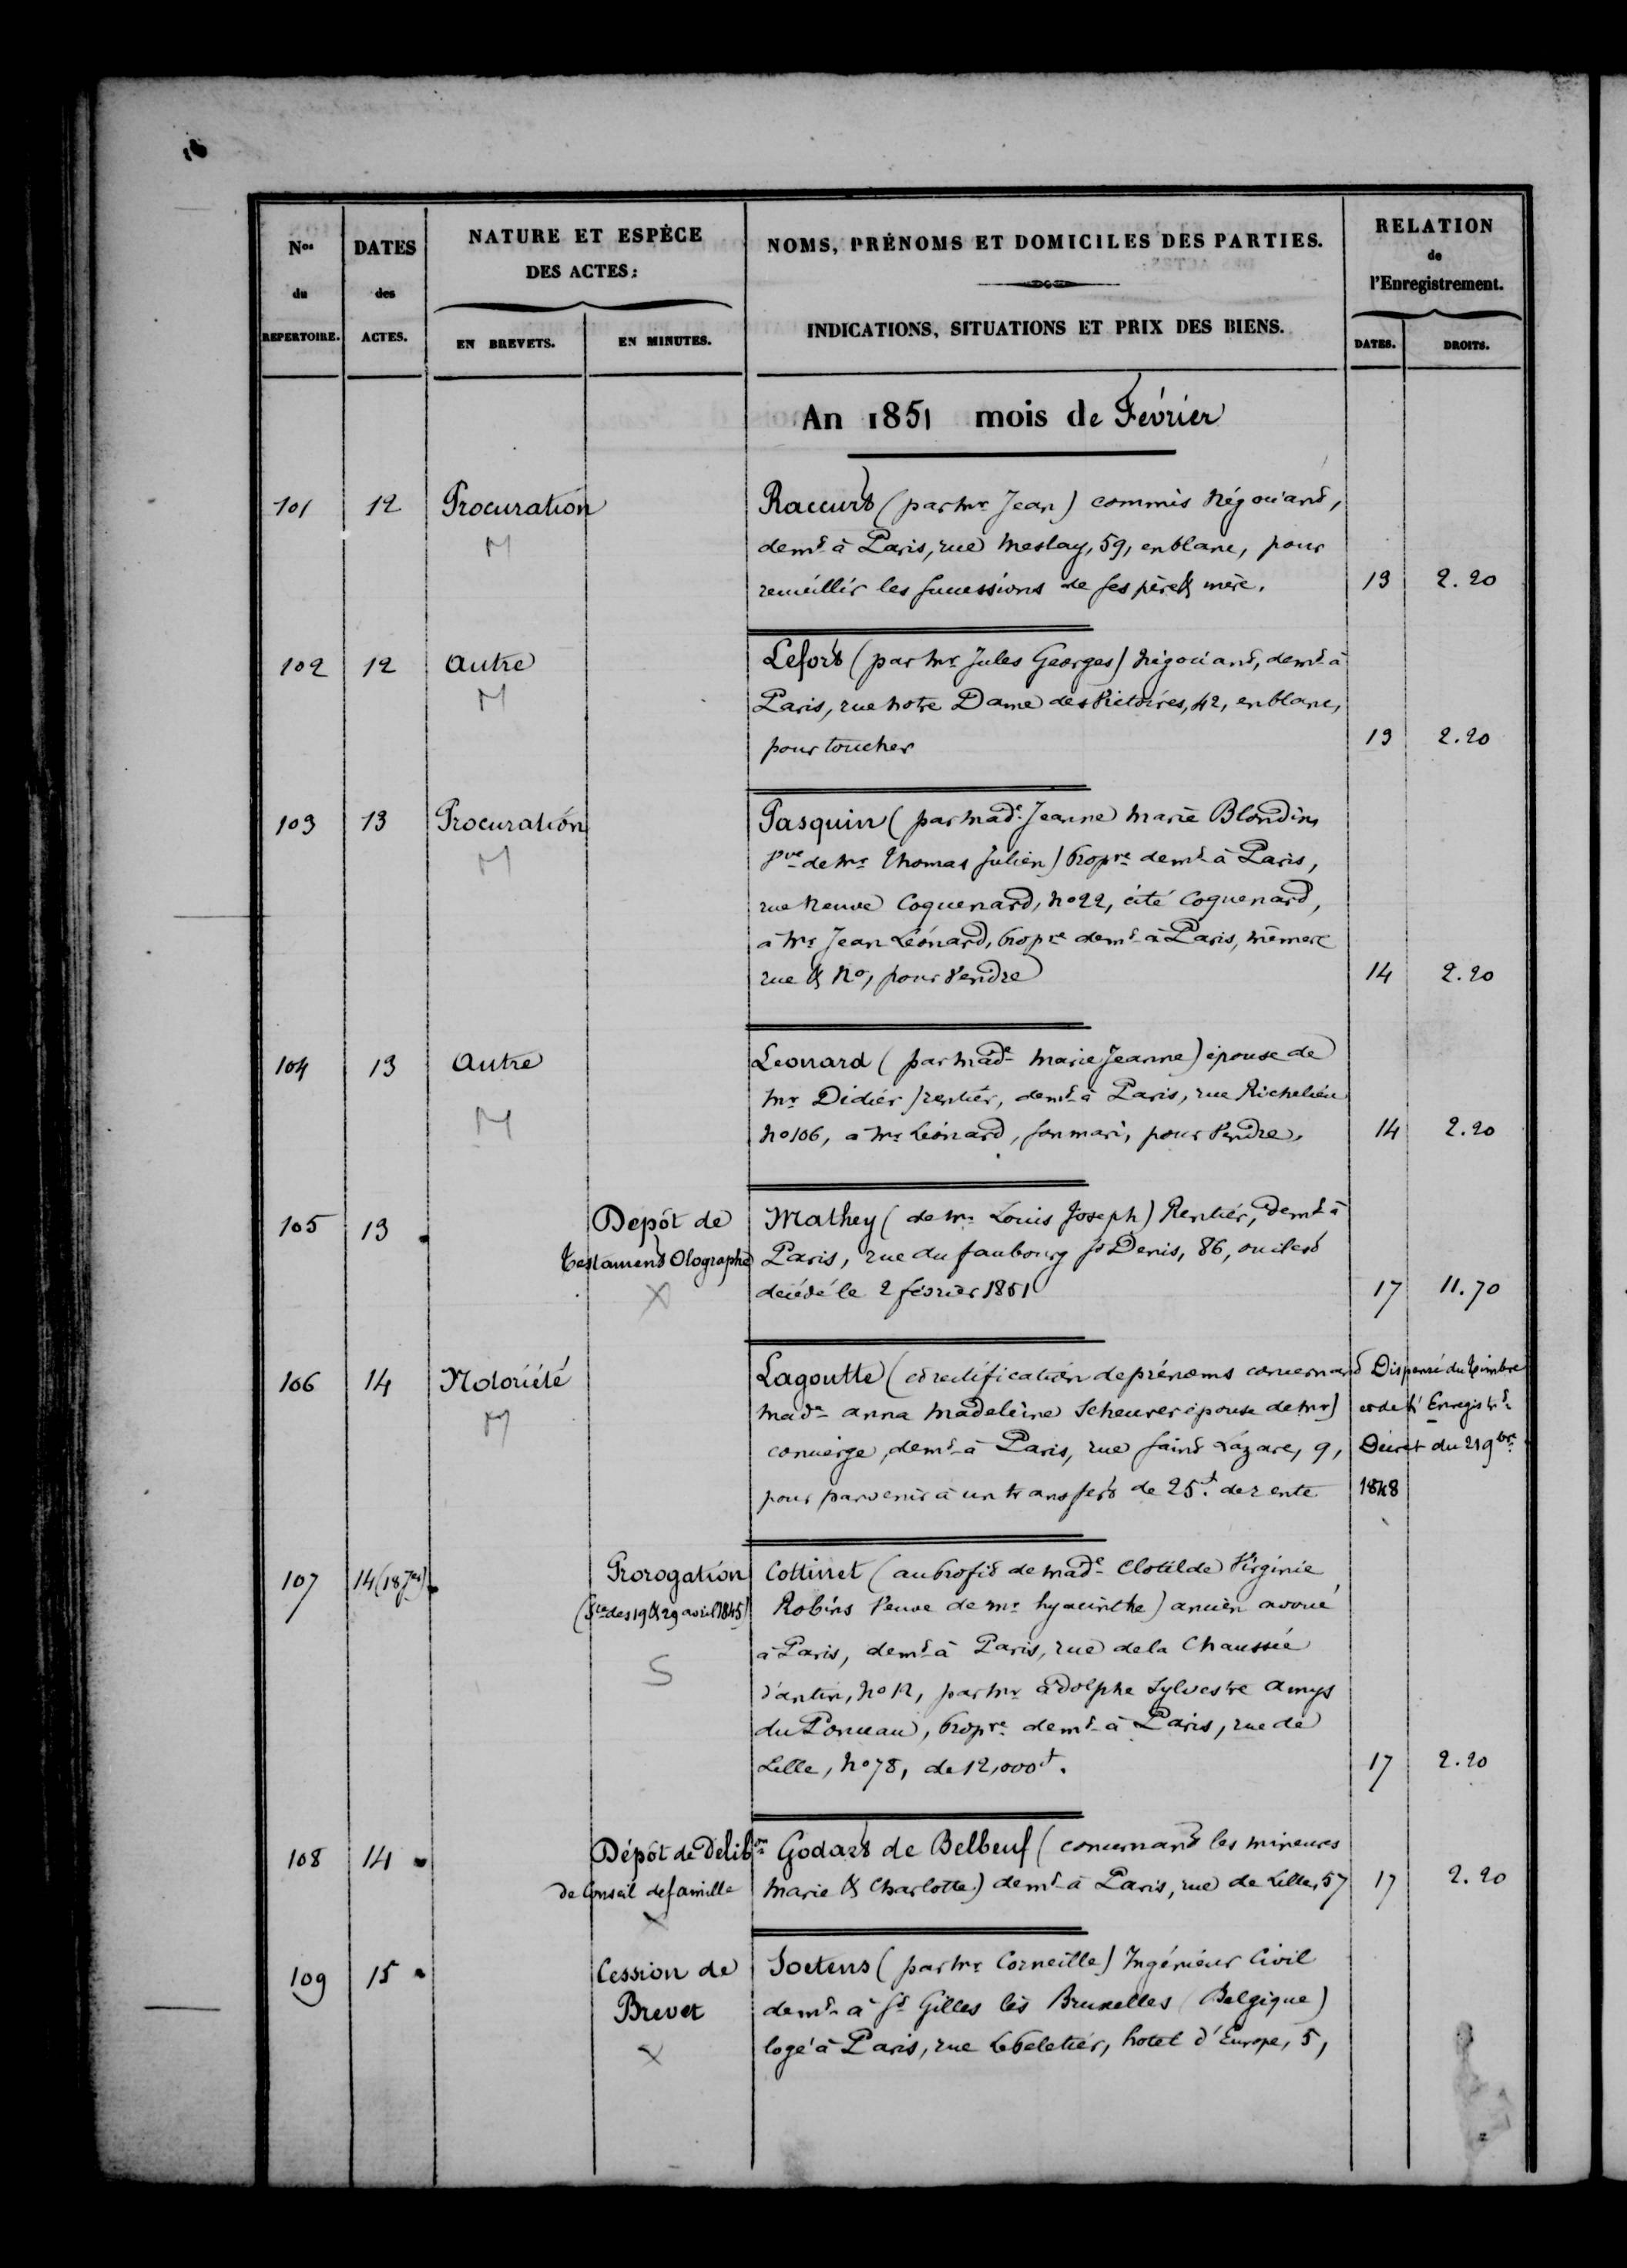 Nos du REPERTOIRE.
DATES des ACTES.
NATURE ET ESPÈCE
DES ACTES:
EN BREVETS.
EN MINUTES.
NOMS, PRÉNOMS ET DOMICILES DES PARTIES.
INDICATIONS, SITUATIONS ET PRIX DES BIENS.
RELATION
de
l'Enregistrement.
DATES.
DROITS.
An 1851 mois de Février
101 12 Procuration Raccurt (par Mr Jean) commis Négociant,
M demt à Paris, rue Meslay, 59, en blanc, pour
recueillir les successions de ses père & mère. 13 2.20
102 12 Autre Lefort (par Mr Jules Georges) Négociant, demt à
M Paris, rue Notre Dame des Victoires, 42, en blanc,
pour toucher 13 2.20
103 13 Procuration Pasquin (par Made Jeanne Marie Blondin,
M Vve de Mr Thomas Julien) Propre demt à Paris,
rue Neuve Coquenard, No 22, cité Coquenard,
à Mr Jean Léonard, Propre demt à Paris, même
rue & No, pour Vendre 14 2.20
104 13 Autre Leonard (par Made Marie Jeanne) épouse de
M Mr Didier) rentier, demt à Paris, rue Richelieu
No 106, à Mr Léonard, son mari, pour Vendre, 14 2.20
105 13 Depôt de Mathey (de Mr Louis Joseph) Rentier, demt à
Testament Olographe Paris, rue du faubourg St Denis, 86, ou il est
X décédé le 2 février 1851 17 11.70
106 14 Notoriété Lagoutte (et rectification de prénoms concernant Dispensé du timbre
M Made Anna Madeleine Scheurer épouse de Mr) et de l'Enregistrt
concierge, demt à Paris, rue Saint Lazare, 9, Décret du 21 9bre
pour parvenir à un transfert de 25f. de rente 1848
107 14 (18 Jer) Prorogation Cottinet (au Profit de Made Clotilde Virginie
(Ste des 19 & 29 avril 1845) Robin, Veuve de Mr hyacinthe) ancien avoué
S à Paris, demt à Paris, rue de la Chaussée
d'antin, No 12, par Mr Adolphe Sylvestre Amys
du Ponceau, Propre demt à Paris, rue de
Lille, No 78, de 12,000f. 17 2.20
108 14 Dépôt de Délibon Godart de Belbeuf (concernant les mineures
de Conseil de famille Marie & Charlotte) demt à Paris, rue de Lille, 57 17 2.20
X
109 15 Cession de Soetens (par Mr Corneille) Ingénieur Civil
Brevet demt à St Gilles lès Bruxelles (Belgique)
X logé à Paris, rue Lepeletier, hotel d'Europe, 5,